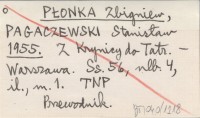 PŁONKA Zbigniew,
PAGACZEWSKI Stanisław
1955. Z Krynicy do Tatr. –
Warszawa. Ss. 56, nlb. 4,
il., m. 1. TNP
Przewodnik.